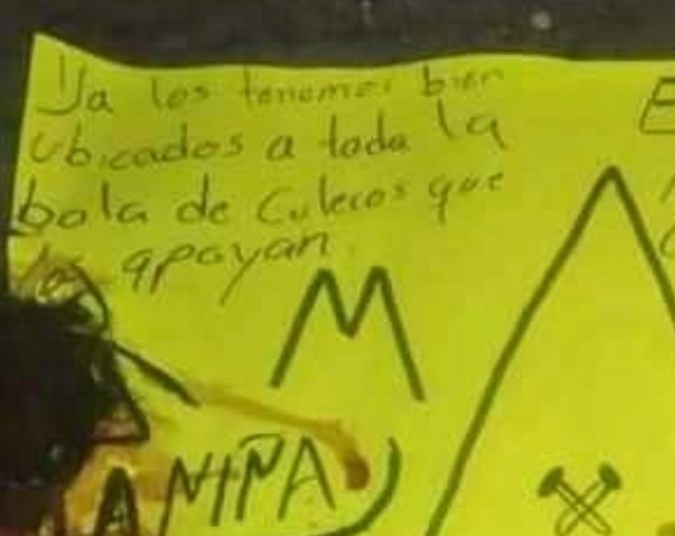 Ya los tenemos bien
ubicados a toda la
bola de Culecos que
los apoyan
M
A NIÑA